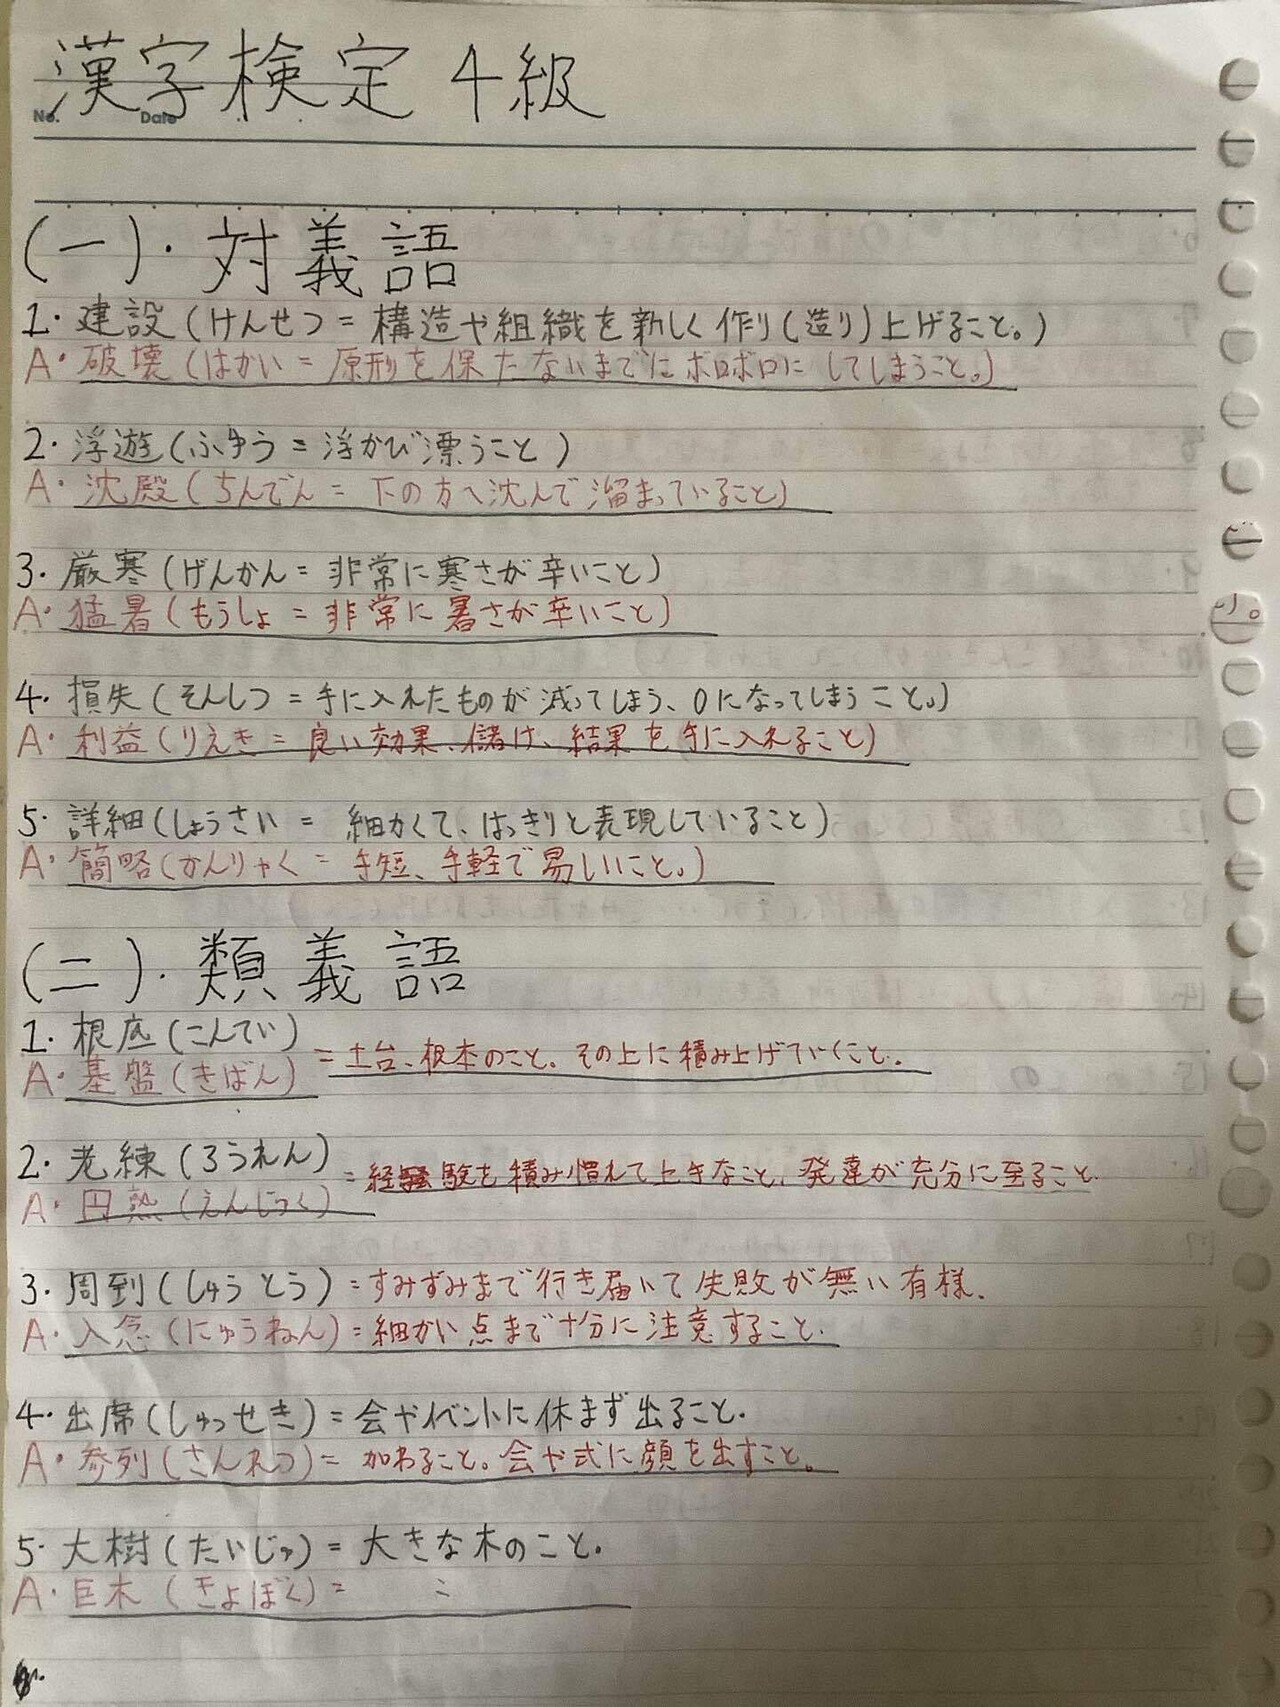 漢字検定 4級
No.
Date
(一)・対義語
1・建設(けんせつ=構造や組織を新しく作り(造り)上げること。)
A・破壊(はかい=原形を保たないまでにボロボロにしてしまうこと。)
2・浮遊(ふゆう=浮かび漂うこと)
A・沈殿(ちんでん=下の方へ沈んで溜まっていること)
3・厳寒(げんかん=非常に寒さが辛いこと)
A・猛暑(もうしょ=非常に暑さが辛いこと)
4・損失(そんしつ=手に入れたものが減ってしまう、0になってしまうこと。)
A・利益(りえき=良い効果、儲け、結果を手に入れること)
5・詳細(しょうさい= 細かくて、はっきりと表現していること)
A・簡略(かんりゃく=手短、手軽で易しいこと。)
(二)・類義語
1・根底(こんてい)
A・基盤(きばん)
=土台、根本のこと。その上に積み上げていくこと。
2・老練(ろうれん)
A・円熟(えんじゅく)
=経験を積み慣れて上手なこと、発達が充分に至ること.
3・周到(しゅうとう)=すみずみまで行き届いて失敗が無い有様.
A・入念(にゅうねん)=細かい点まで十分に注意すること.
4・出席(しゅっせき)=会やイベントに休まず出ること.
A・参列(さんれつ)=加わること。会や式に顔を出すこと。
5・大樹(たいじゅ)=大きな木のこと.
A・巨木(きょぼく)= 〃